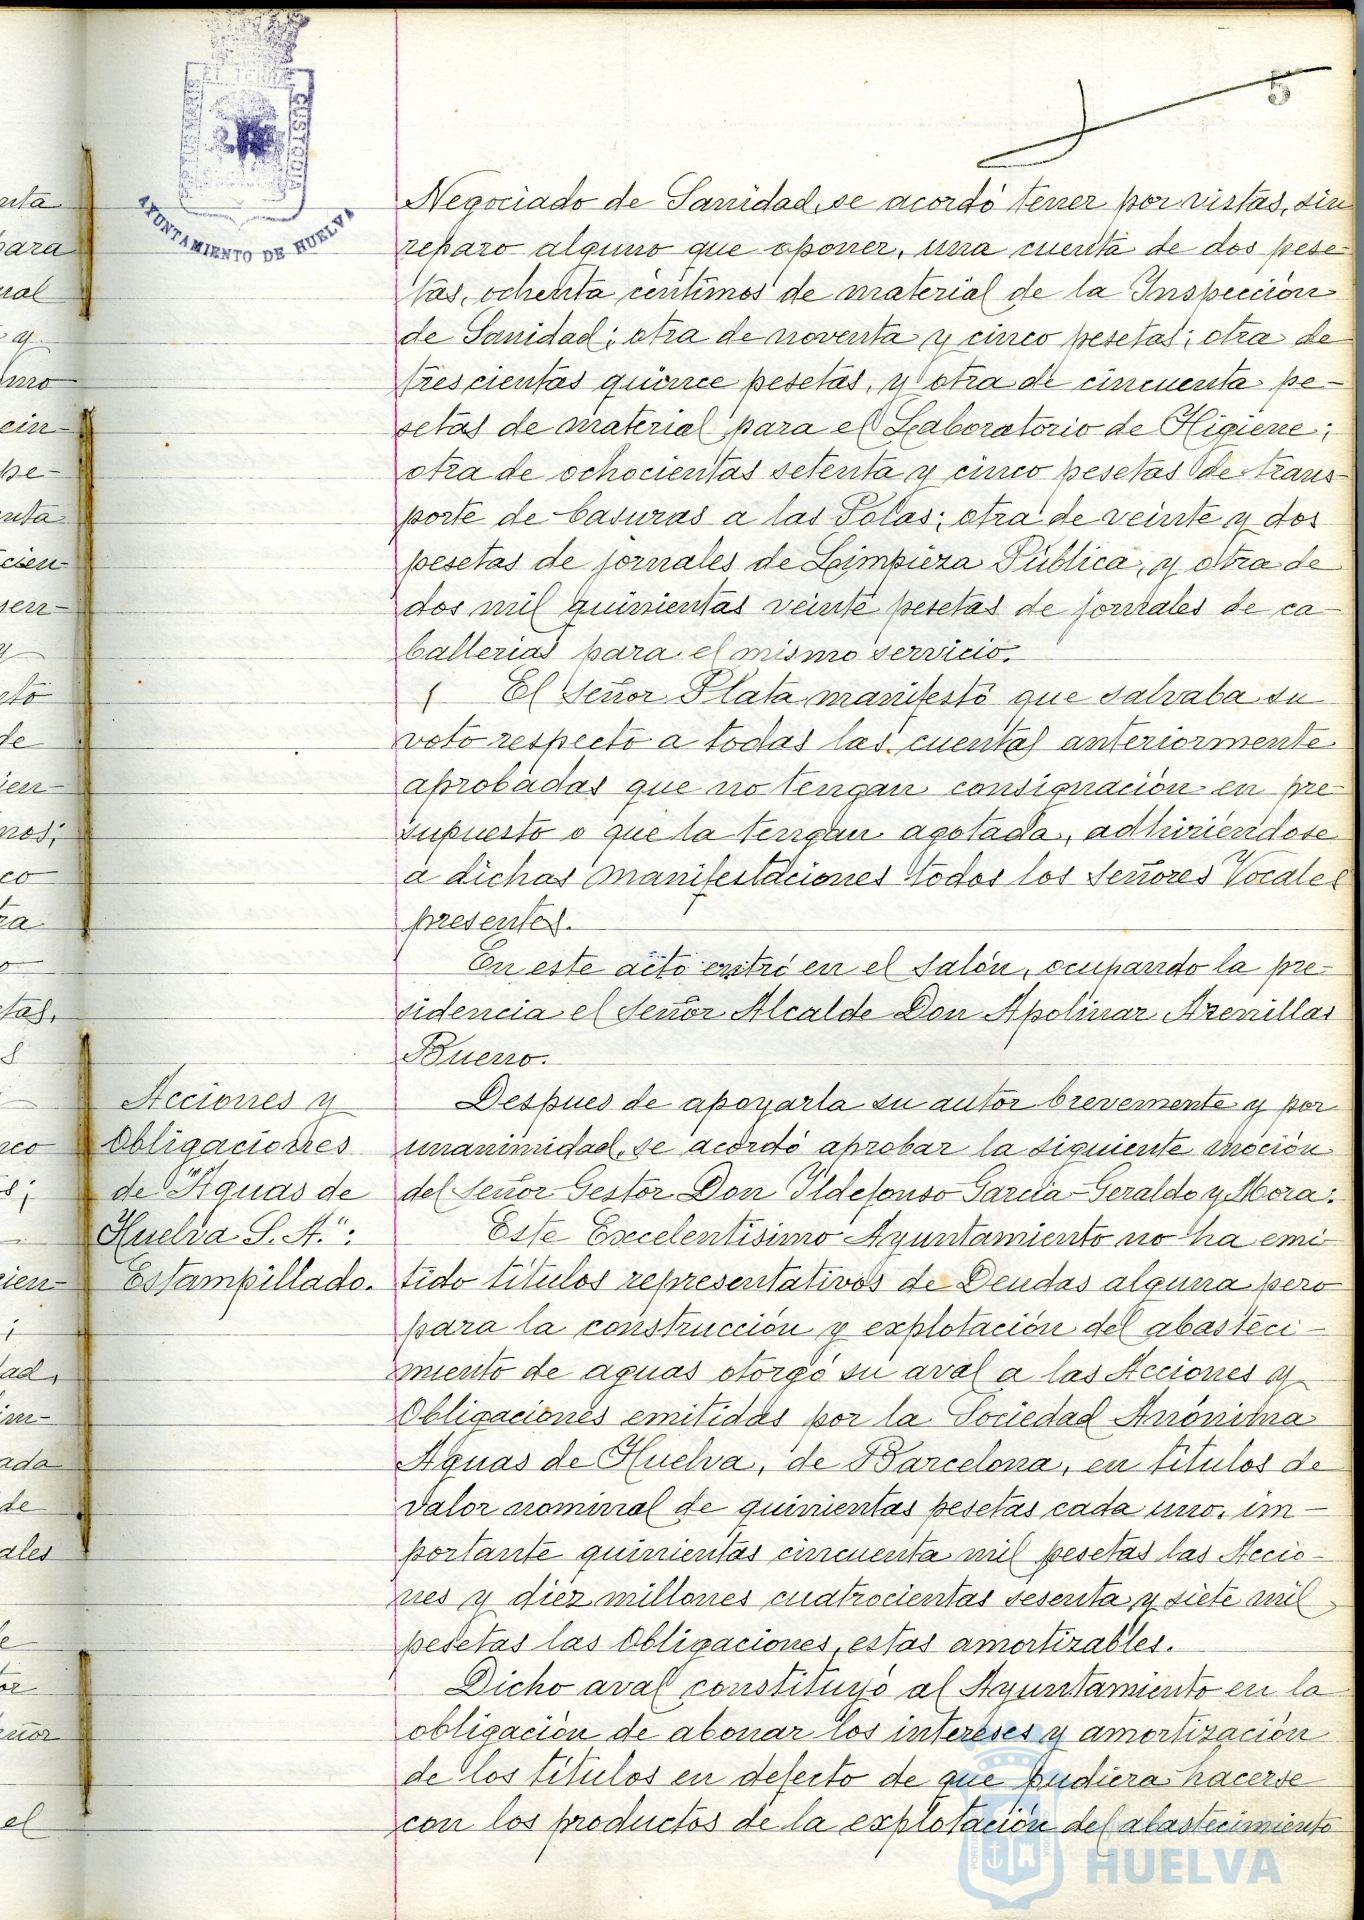 5
PORTUS MARIS ET TERRAE CUSTODIA
AYUNTAMIENTO DE HUELVA
Negociado de Sanidad, se acordó tener por vistas, sin
reparo alguno que oponer, una cuenta de dos pese-
tas, ochenta céntimos de material de la Inspección
de Sanidad; otra de noventa y cinco pesetas; otra de
trescientas quince pesetas, y otra de cincuenta pe-
setas de material para el Laboratorio de Higiene;
otra de ochocientas setenta y cinco pesetas de trans-
porte de basuras a las Polas; otra de veinte y dos
pesetas de jornales de Limpieza Pública, y otra de
dos mil quinientas veinte pesetas de jornales de ca-
ballerias para el mismo servicio.
El señor Plata manifestó que salvaba su
voto respecto a todas las cuentas anteriormente
aprobadas que no tengan consignación en pre-
supuesto o que la tengan agotada, adhiriéndose
a dichas manifestaciones todos los señores Vocales
presentes.
En este acto entró en el salón, ocupando la pre-
sidencia el señor Alcalde Don Apolinar Arenillas
Bueno.
Acciones y
Obligaciones
de "Aguas de
Huelva S. A.":
Estampillado.
Despues de apoyarla su autor brevemente y por
unanimidad, se acordó aprobar la siguiente moción
del señor Gestor Don Ildefonso Garcia-Geraldo y Mora:
Este Excelentísimo Ayuntamiento no ha emi-
tido títulos representativos de Deudas alguna pero
para la construcción y explotación del abasteci-
miento de aguas otorgó su aval a las Acciones y
Obligaciones emitidas por la Sociedad Anónima
Aguas de Huelva, de Barcelona, en títulos de
valor nominal de quinientas pesetas cada uno, im-
portante quinientas cincuenta mil pesetas las Accio-
nes y diez millones cuatrocientas sesenta y siete mil
pesetas las Obligaciones, estas amortizables.
Dicho aval constituyó al Ayuntamiento en la
obligación de abonar los intereses y amortización
de los títulos en defecto de que pudiera hacerse
con los productos de la explotación del abastecimiento
HUELVA